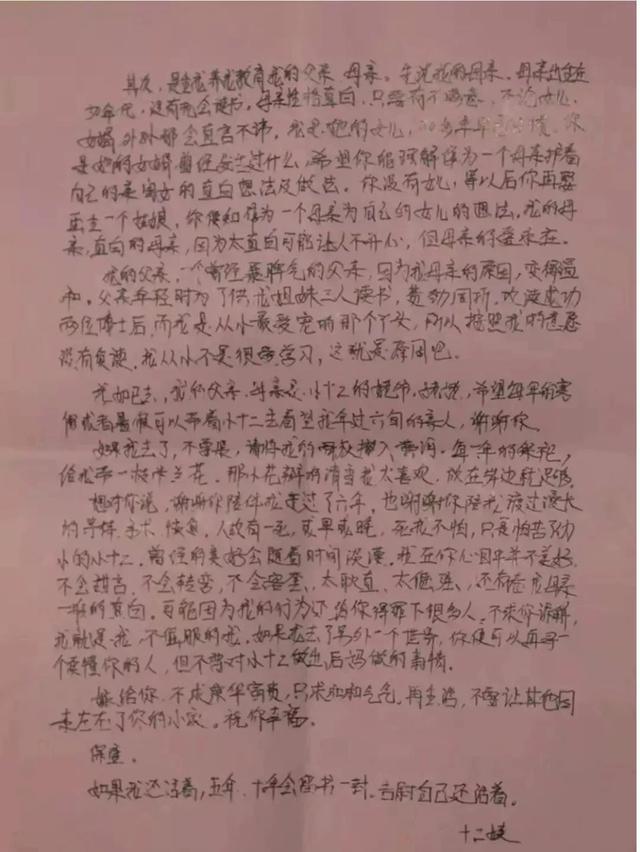 其次，是生我养我教育我的父亲 母亲。先说我的母亲。母亲出生在
50年代，没有机会读书，母亲性格直白，只要有不满意，不论女儿
女婿 外孙都会直言不讳，我是她的女儿，
是她的女婿 曾经 过什么，希望你能理解作为一个母亲护着
自己的亲闺女的直白想法及做法。你没有女儿，等以后你再娶
再生一个姑娘，你便知作为一个母亲为自己的女儿的想法。我的母
亲，直白的母亲，因为太直白可能让人不开心，但母亲的爱永在。
我的父亲，一个曾经暴脾气的父亲，因为我母亲的原因，变得温
和。父亲年轻时为了供我姐妹三人读书，劳动 成功
两位博士后，而我是从小最受宠的那个丫头，所以按照我的意愿
没有负 我从小不是很爱学习，这就是原因吧。
我如已去，我的父亲、母亲是小十二的姥爷、姥姥，希望每年的寒
假或者暑假可以带着小十二去看望我年过六旬的亲人，谢谢你。
如果我去了，不要墓，请将我的 撒入 每一年的祭祀，
给我带一枝 兰花。那小花瓣的清香我太喜欢，放在岸边就足够。
想对你说，谢谢你陪伴我走过了六年，也谢谢你陪我渡过漫长
的 手术、恢复。人故有一死，或早或晚，死我不怕，只是怕苦了幼
小的小十二。曾经的美好会随着时间淡漠。我在你心目中并不美好，
不会甜言，不会转弯，不会 太耿直、太倔强、还有像我母亲
一样的直白。可能因为我的行为还给你得罪下很多人，不求你谅解，
我就是我，不 服的我。如果我去了另外一个世界，你便可以再寻一
个读懂你的人，但不要对小十二做出后妈做的事情。
嫁给你，不求荣华富贵，只求和和气气。再生活，不要让其他因
素左右了你的小家。祝你幸福。
保重。
如果我还活着，五年、十年会留书一封，告慰自己还活着。
十二